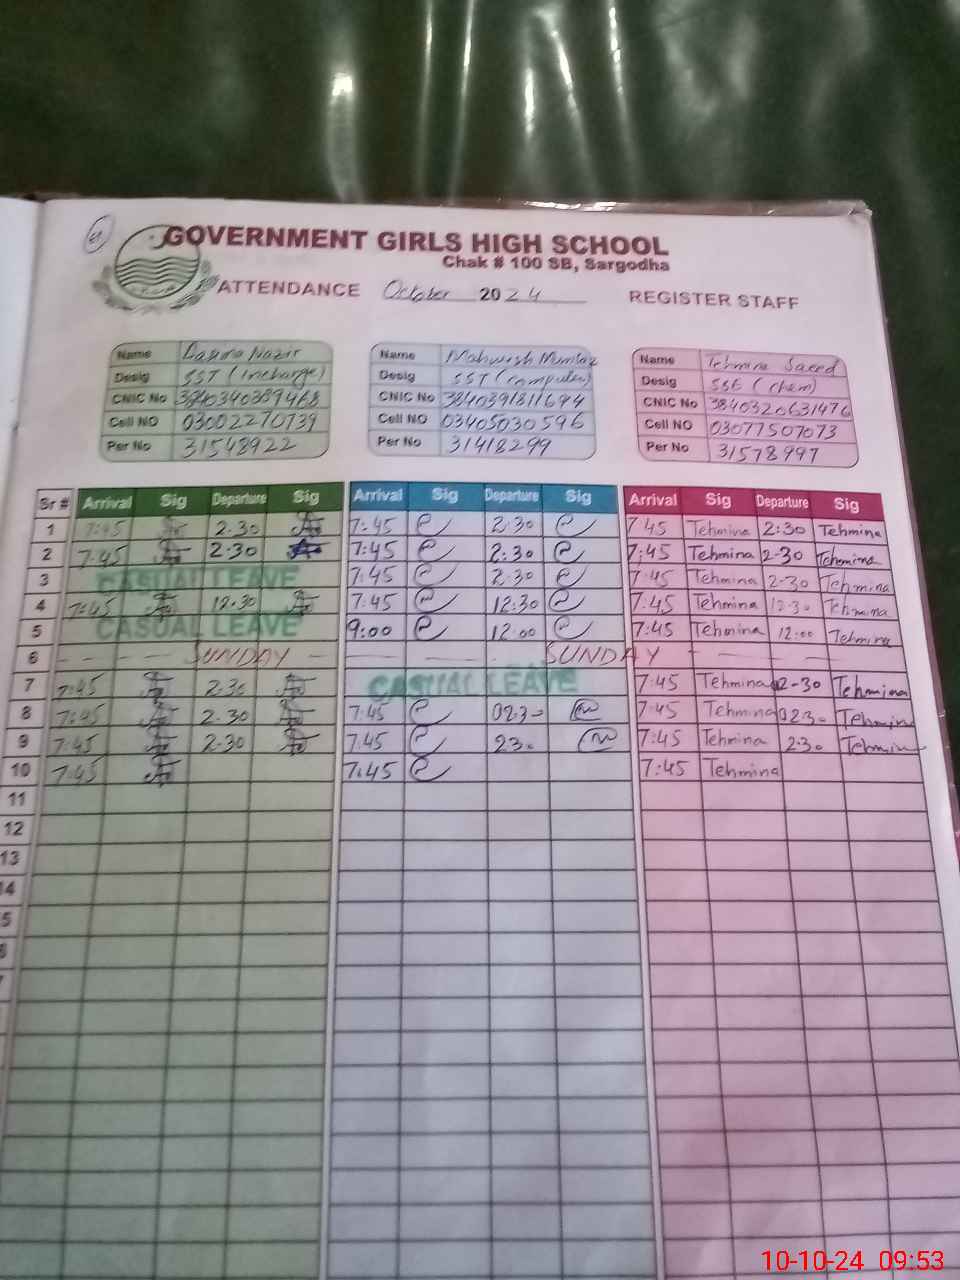 GOVERNMENT GIRLS HIGH SCHOOL
Chak # 100 SB, Sargodha
ATTENDANCE October 2024 REGISTER STAFF
Name Nazir
Desig SST (Incharge)
CNIC No
Cell NO 03002270739
Per No 31548922
Name Mahwish Mumtaz
Desig SST (computer)
CNIC No 3840391811694
Cell NO 03405030596
Per No 31418299
Name Tehmina Saeed
Desig SSE (chem)
CNIC No 3840320631476
Cell NO 03077507073
Per No 31578997
Sr # Arrival Sig Departure Sig Arrival Sig Departure Sig Arrival Sig Departure Sig
1 7:45 2.30 7:45 2.30 7 45 Tehmina 2:30 Tehmina
2 7:45 2:30 7:45 2:30 7:45 Tehmina 2-30 Tehmina
3 CASUAL LEAVE 7:45 2:30 7:45 Tehmina 2-30 Tehmina
4 7:45 12.30 7:45 12:30 7:45 Tehmina 12-30 Tehmina
5 CASUAL LEAVE 9:00 12:00 7:45 Tehmina 12:00 Tehmina
6 SUNDAY SUNDAY
7 7:45 2.30 CASUAL LEAVE 7:45 Tehmina 2-30 Tehmina
8 7:45 2.30 7:45 023- 7:45 Tehmina 023- Tehmina
9 7:45 2.30 7:45 7:45 Tehmina 2-30 Tehmina
10 7:45 7:45 7:45 Tehmina
11
12
13
14
10-10-24 09:53